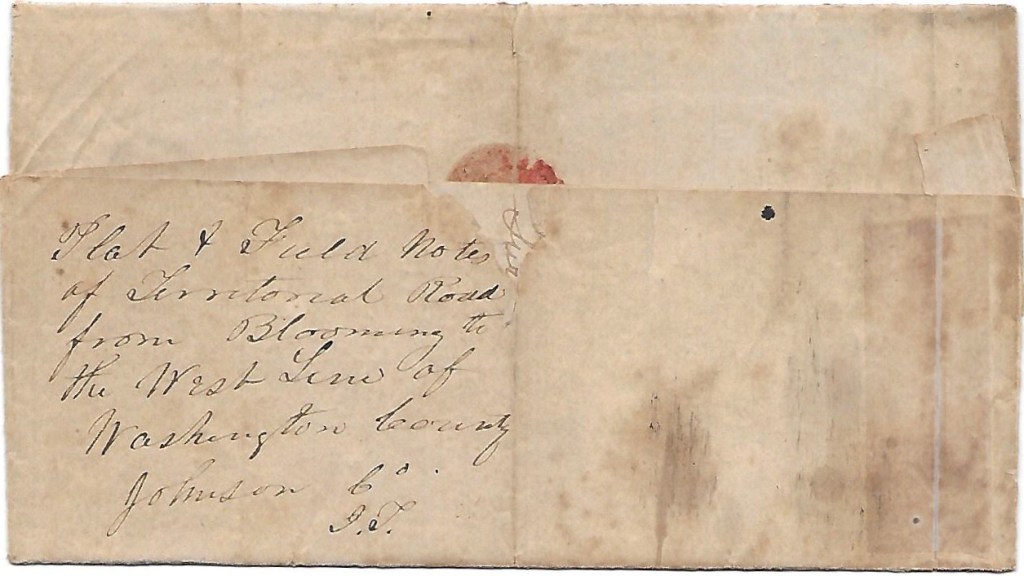 Plat & Field Notes
of Territorial Road
from Blooming to
the West Line of
Washington County
Johnson Co.
I.T.